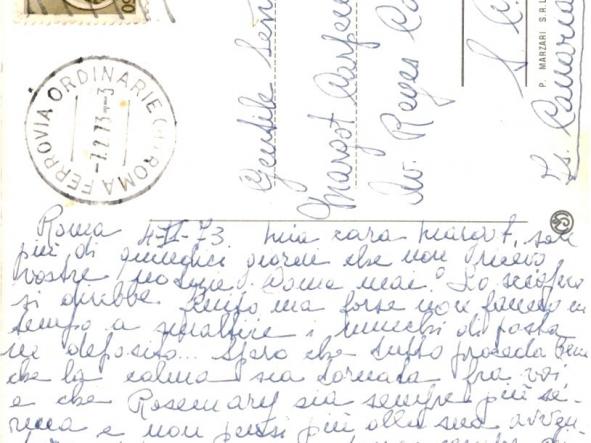 50
ROMA FERROVIA ORDINARIE
-7.2.73-3
Gentile
Margot
Av. Reyes
P. MARZARI S.R.L
Is. Canarias
Roma 4-II-73 Mia cara Margot, son
più di quindici giorni che non ricevo
vostre notizie. Come mai? Lo sciopero
si dovrebbe ma forse non fanno in
tempo a smaltire i mucchi di posta
in deposito... Spero che tutto proceda bene
che la calma sia tornata fra voi
e che Rosemary sia sempre più se-
rena e non pensi più alla sua avven-